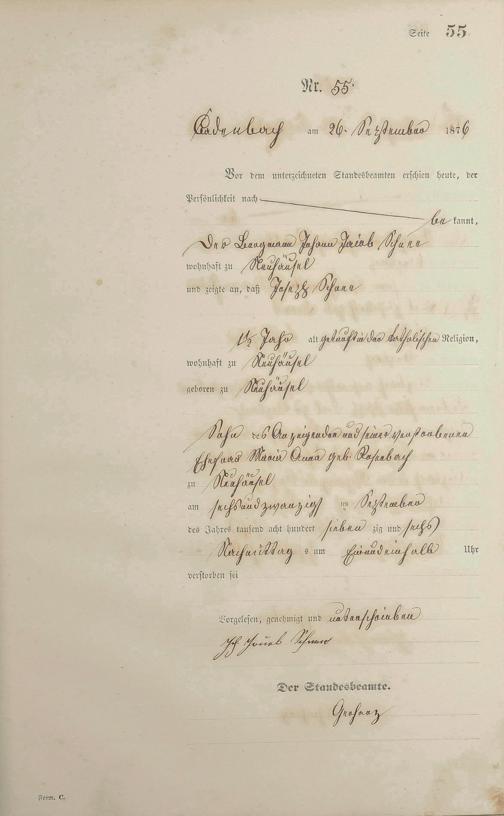 Seite 55
Nr. 55.
Cadenbach am 26. September 1876
Vor dem unterzeichneten Standesbeamten erschien heute, der
Persönlichkeit nach
bekannt,
Der Bergmann Johann Jacob Schnee
wohnhaft zu Neuhäusel
und zeigte an, daß Joseph Schnee
1½ Jahr alt getauft in der katholischen Religion,
wohnhaft zu Neuhäusel
geboren zu Neuhäusel
Sohn des Anzeigenden und seiner verstorbenen
Ehefrau Maria Anna geb. Rosenbach
zu Neuhäusel
am sechsundzwanzigst en September
des Jahres tausend acht hundert sieben zig und sechs
Nachmittag s um Einundeinhalb Uhr
verstorben sei
Vorgelesen, genehmigt und unterschrieben
Schnee
Der Standesbeamte.
Form. C.